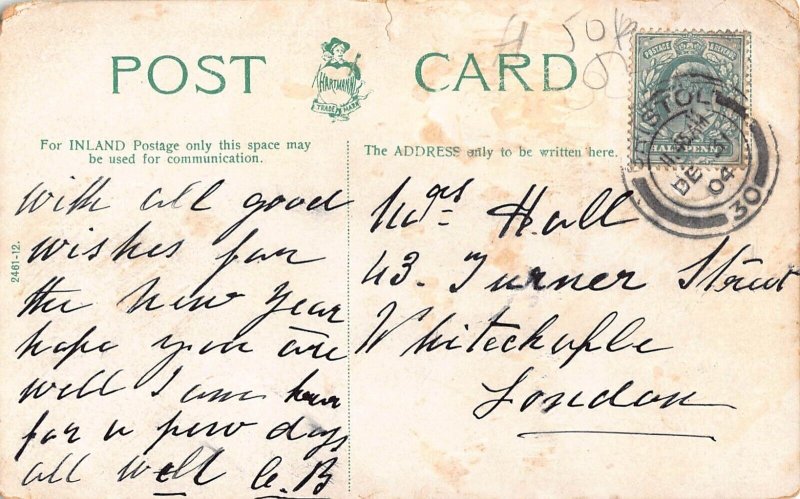 POST CARD
HARTMANN
TRADE MARK
POSTAGE & REVENUE
HALF PENNY
BRISTOL
DE
04
30
For INLAND Postage only this space may
be used for communication.
The ADDRESS only to be written here.
2461-12.
with all good
wishes for
the New Year
hope you are
well I am here
for a few days
all well C.B
Hall
43. Turner Street
Whitechaple
London